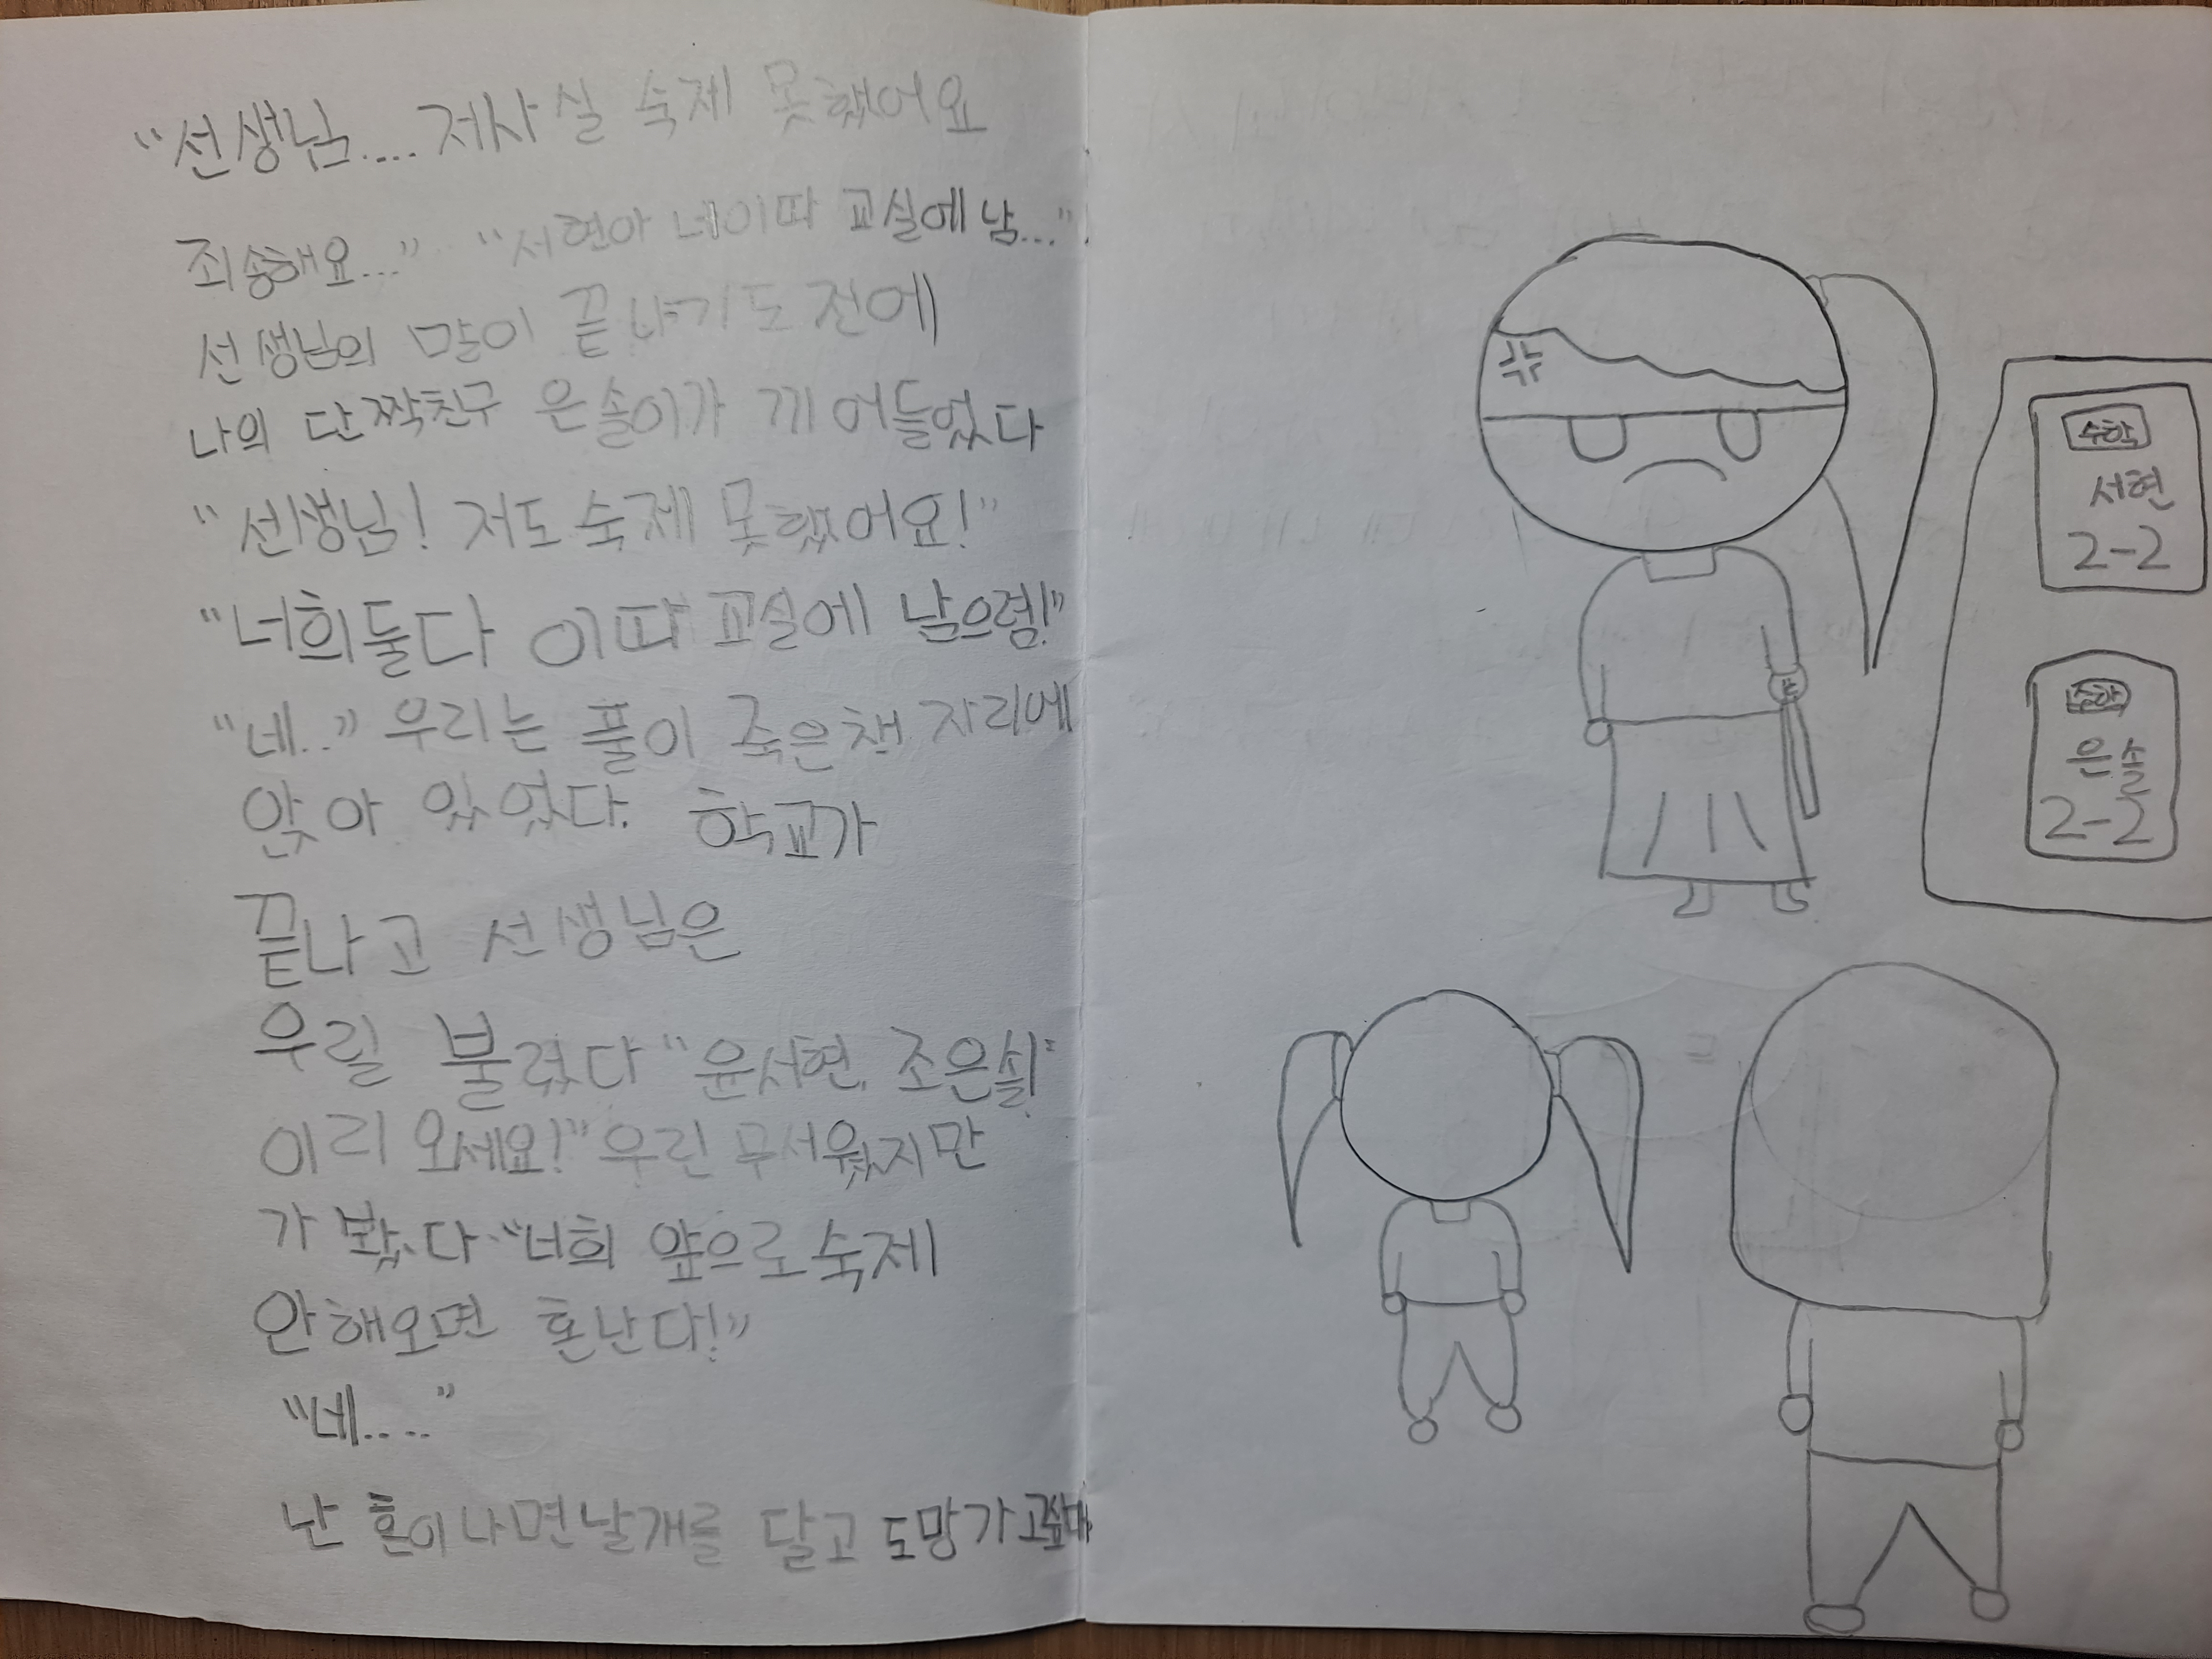 “선생님.... 저사실 숙제 못했어요
죄송해요...” “서현아 네이따 교실에 남...”
선생님의 말이 끝나기도 전에
나의 단짝친구 은솔이가 끼어들었다
“선생님! 저도 숙제 못했어요!”
“너희둘다 이따 교실에 남으렴!”
“네..” 우리는 풀이 죽은채 자리에
앉아 있었다. 학교가
끝나고 선생님은
우릴 불렀다 “윤서현, 조은솔!
이리 오세요!” 우린 무서웠지만
가 봤다 “너희 앞으로 숙제
안해오면 혼난다!”
“네....”
난 혼이나면날개를 달고 도망가고싶다
수학
서현
2-2
수학
은솔
2-2